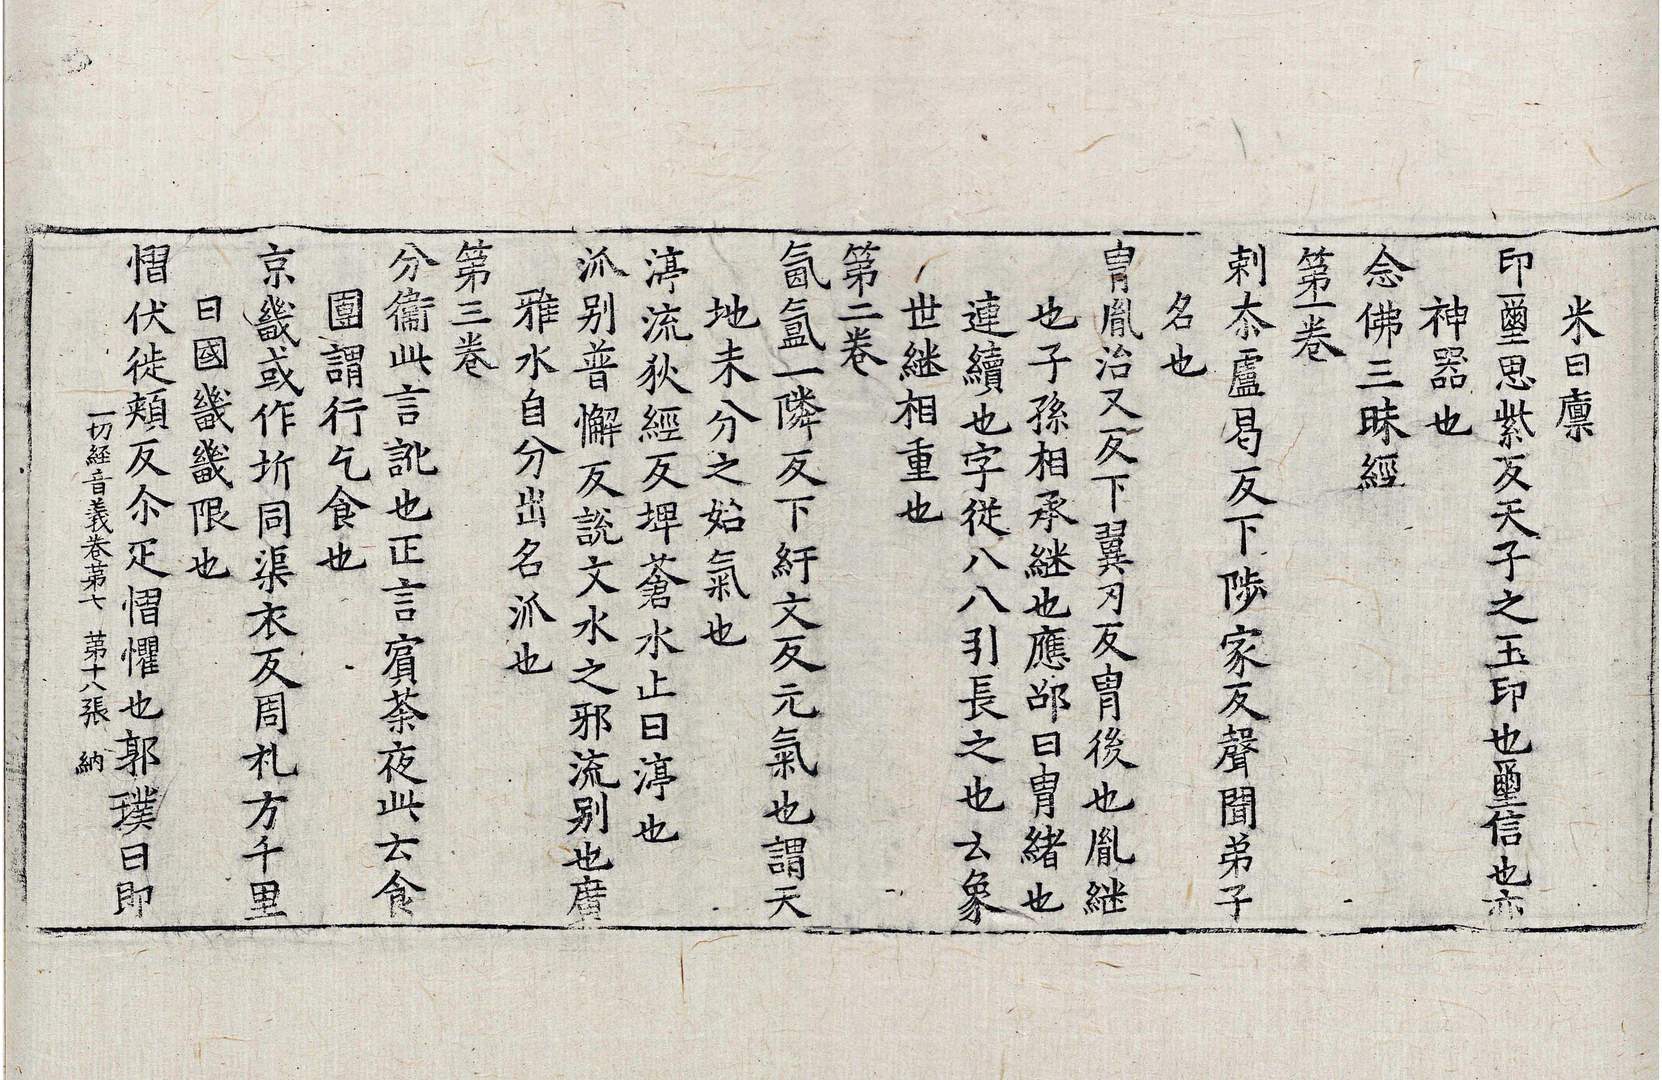 米曰廩
印璽思紫反天子之玉印也璽信也亦
神器也
念佛三昧經
第一卷
剌柰盧曷反下陟家反聲聞弟子
名也
胄胤治又反下翼刃反胄後也胤継
也子孫相承継也應邵曰胄緒也
連續也字從八八引長之也幺象
世継相重也
第二卷
氤氳一隣反下紆文反元氣也謂天
地未分之始氣也
渟流狄經反埤蒼水止曰渟也
𣲖别普懈反說文水之邪流别也廣
雅水自分出名𣲖也
第三卷
分衞此言訛也正言賓荼夜此云食
團謂行乞食也
京畿或作圻同渠衣反周礼方千里
曰國畿畿限也
慴伏徒頰反尒疋慴懼也郭璞曰即
一切経音義卷第七　第十八張　納